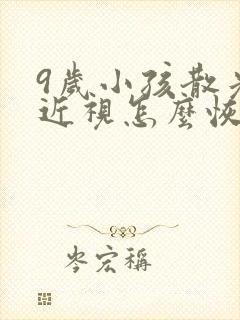 9歲小孩散
近視怎麼恢
岑宏稱